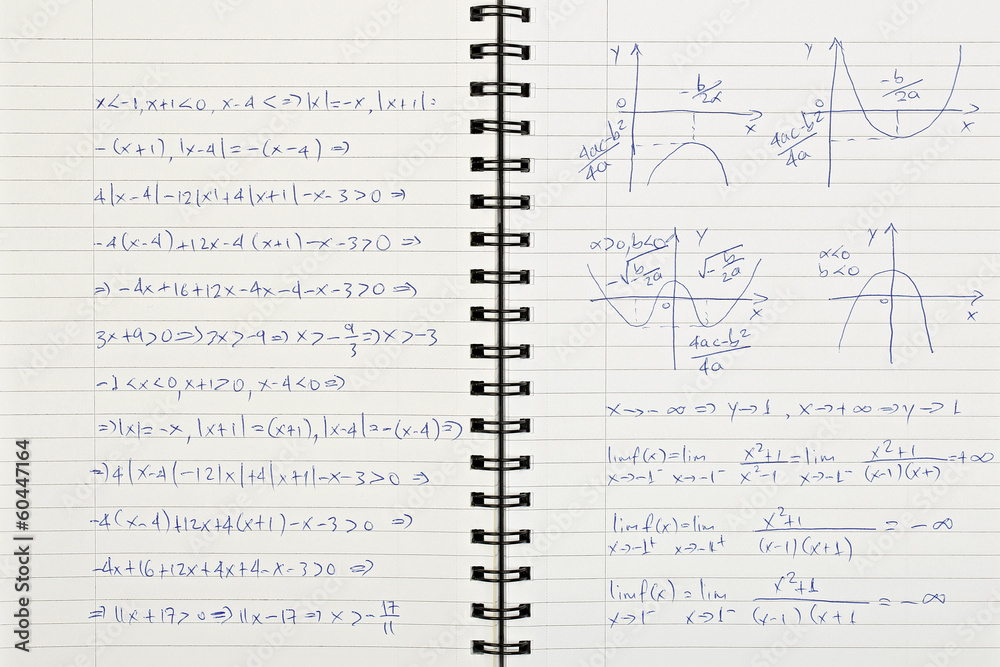 x<-1, x+1<0, x-4<⇒|x|=-x, |x+1|=
-(x+1), |x-4|=-(x-4) ⇒
4|x-4|-12|x|+4|x+1|-x-3>0 ⇒
-4(x-4)+12x-4(x+1)-x-3>0 ⇒
⇒ -4x+16+12x-4x-4-x-3>0 ⇒
3x+9>0 ⇒ 3x>-9 ⇒ x>-9/3 ⇒ x>-3
-1<x<0, x+1>0, x-4<0 ⇒
⇒|x|=-x, |x+1|=(x+1), |x-4|=-(x-4) ⇒
⇒4|x-4|-12|x|+4|x+1|-x-3>0 ⇒
-4(x-4)+12x+4(x+1)-x-3>0 ⇒
-4x+16+12x+4x+4-x-3>0 ⇒
⇒ 11x+17>0 ⇒ 11x-17 ⇒ x>-17/11
y 0 -b/2a x (4ac-b²)/4a
y 0 -b/2a x (4ac-b²)/4a
α>0, b<0 y -√(b/2a) √(-b/2a) x (4ac-b²)/4a
α<0 y
b<0
0 x
x→-∞ ⇒ y→1, x→+∞ ⇒ y→1
lim f(x) = lim (x²+1)/(x²-1) = lim (x²+1)/((x-1)(x+)) = +∞
x→-1⁻ x→-1⁻ x→-1⁻
lim f(x) = lim (x²+1)/((x-1)(x+1)) = -∞
x→-1⁺ x→-1⁺
lim f(x) = lim (x²+1)/((x-1)(x+1 = -∞
x→1⁻ x→1⁻
Adobe Stock | #60447164